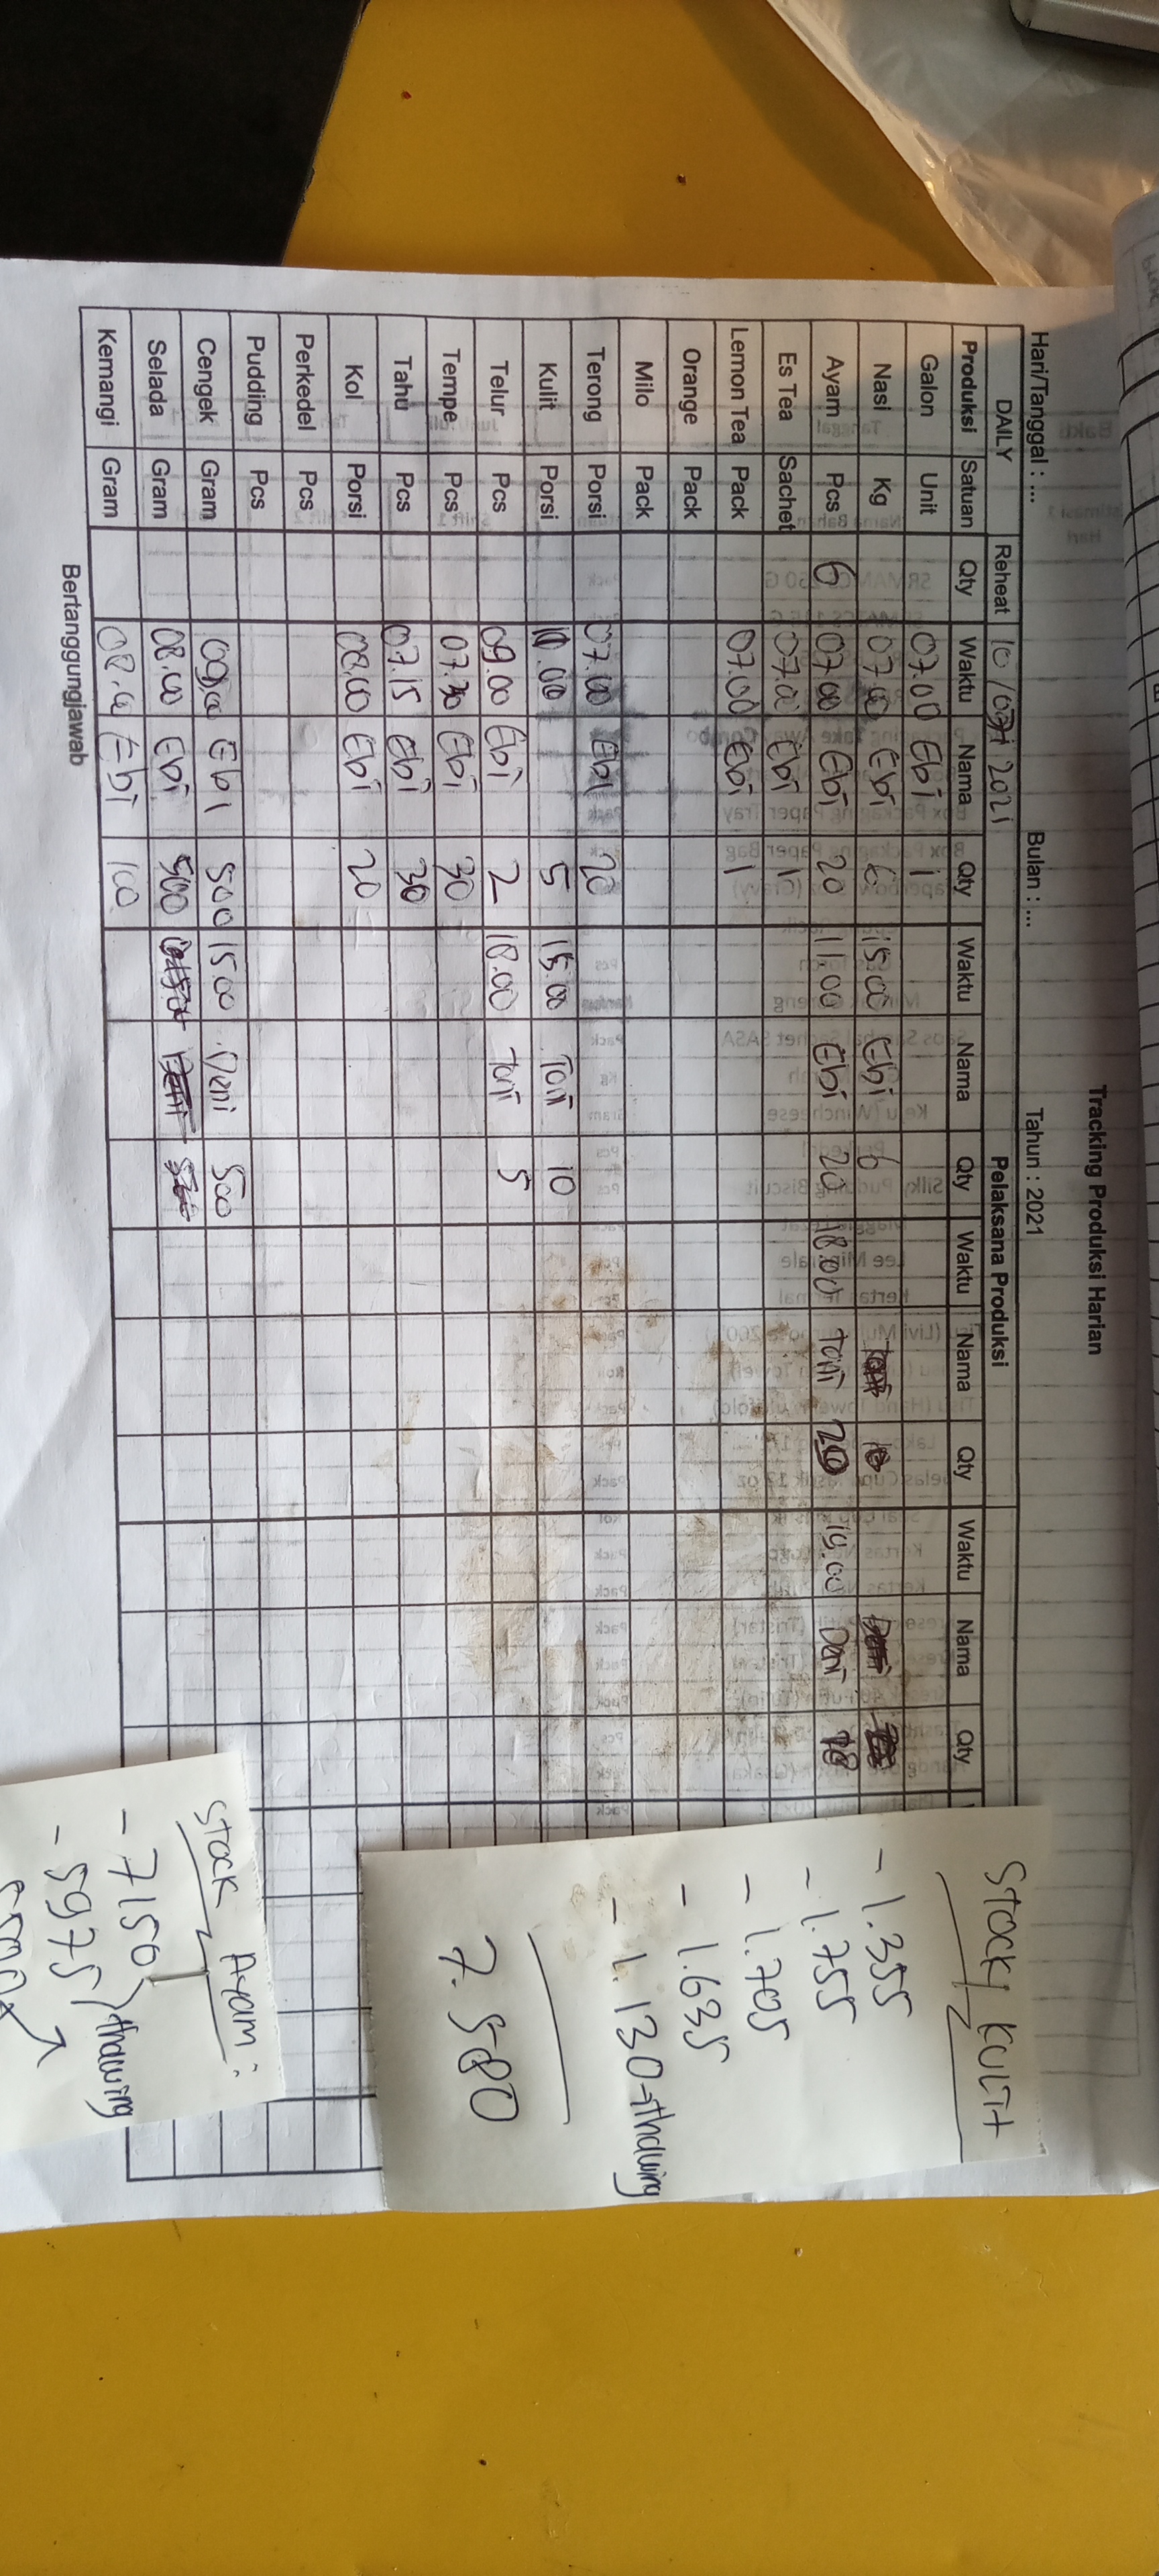 Tracking Produksi Harian
Hari/Tanggal : ... Bulan : ... Tahun : 2021
DAILY Reheat 10/ 2021 Pelaksana Produksi
Produksi Satuan Qty Waktu Nama Qty Waktu Nama Qty Waktu Nama Qty Waktu Nama Qty
Galon Unit 07.00 Ebi 1
Nasi Kg 07.00 Ebi 6 15.00 Ebi 6
Ayam Pcs 6 07.00 Ebi 20 11.00 Ebi 20 18.00 Toni 20 19.00 Deni 18
Es Tea Sachet 07.00 Ebi 1
Lemon Tea Pack 07.00 Ebi 1
Orange Pack
Milo Pack
Terong Porsi 07.00 Ebi 20
Kulit Porsi 10.00 5 15.00 Toni 10
Telur Pcs 09.00 Ebi 2 18.00 Toni 5
Tempe Pcs 07.30 Ebi 30
Tahu Pcs 07.15 Ebi 30
Kol Porsi 08.00 Ebi 20
Perkedel Pcs
Pudding Pcs
Cengek Gram Ebi 500 15.00 Deni 500
Selada Gram 08.00 Ebi 500
Kemangi Gram 08.00 Ebi 100
Bertanggungjawab
Stock KULIT
- 1.355
- 1.755
- 1.705
- 1.635
- 1.130 → thawing
7.580
Stock Ayam :
- 7150
- 5975 thawing